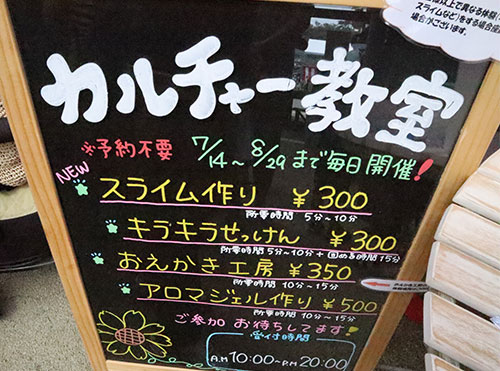 カルチャー教室
※予約不要 7/14〜8/29まで毎日開催!
NEW スライム作り ¥300
所要時間 5分〜10分
キラキラせっけん ¥300
所要時間 5分〜10分+固める時間15分
おえかき工房 ¥350
所要時間 10分〜15分
アロマジェル作り ¥500
所要時間 10分〜15分
ご参加 お待ちしてます!
受付時間
A.M 10:00〜P.M 20:00
スライムなど)をする場合
場合がございます。